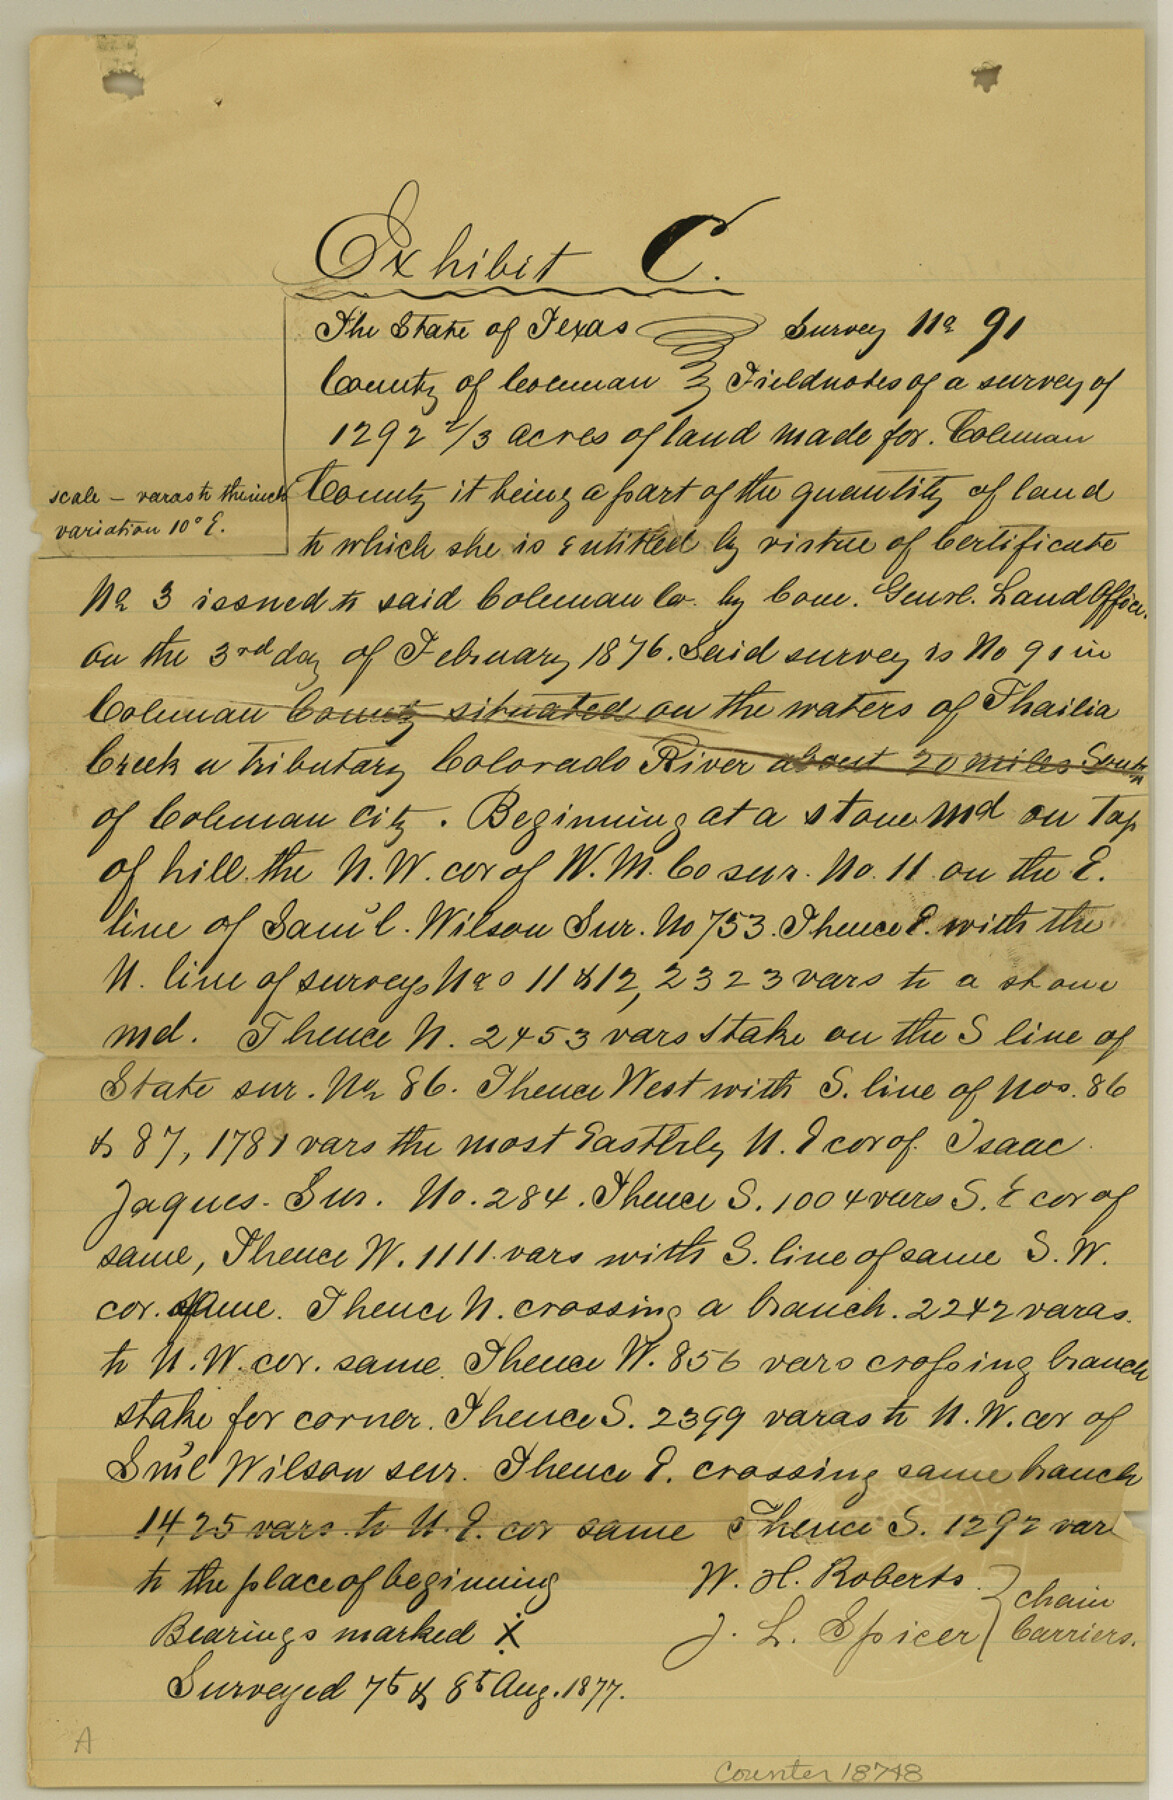 Exhibit C.
The State of Texas Survey No 91
County of Coleman Fieldnotes of a survey of
1292 2/3 acres of land made for. Coleman
scale – varas to the inch County it being a part of the quantity of land
variation 10° E.
to which she is entitled by virtue of Certificate
No 3 issued to said Coleman Co. by Com. Genrl. Land Office.
on the 3rd day of February 1876. Said survey is No 91 in
Coleman County situated on the waters of Thailia
Creek a tributary Colorado River about 20 miles South
of Coleman City. Beginning at a stone md on top
of hill the N.W. cor of W.M. Co sur. No. 11 on the E.
line of Sam'l. Wilson Sur. No 753. Thence E. with the
N. line of surveys Nos 11 & 12, 2323 vars to a stone
md. Thence N. 2453 vars Stake on the S line of
State sur. No 86. Thence West with S. line of Nos. 86
& 87, 1781 vars the most Easterly N. E cor of. Isaac
Jaques. Sur. No. 284. Thence S. 1004 vars S. E cor of
same, Thence W. 1111. vars with S. line of same S. W.
cor. same. Thence N. crossing a branch. 2242 varas.
to N. W. cor. same. Thence W. 856 vars crossing branch
stake for corner. Thence S. 2399 varas to N. W. cor of
Sm'l Wilson sur. Thence E. crossing same branch
1425 vars to N. E. cor same Thence S. 1292 var
to the place of beginning W. H. Roberts chain
Bearings marked X J. L. Spicer Carriers.
Surveyed 7th & 8th Aug. 1877.
A
Counter 18748